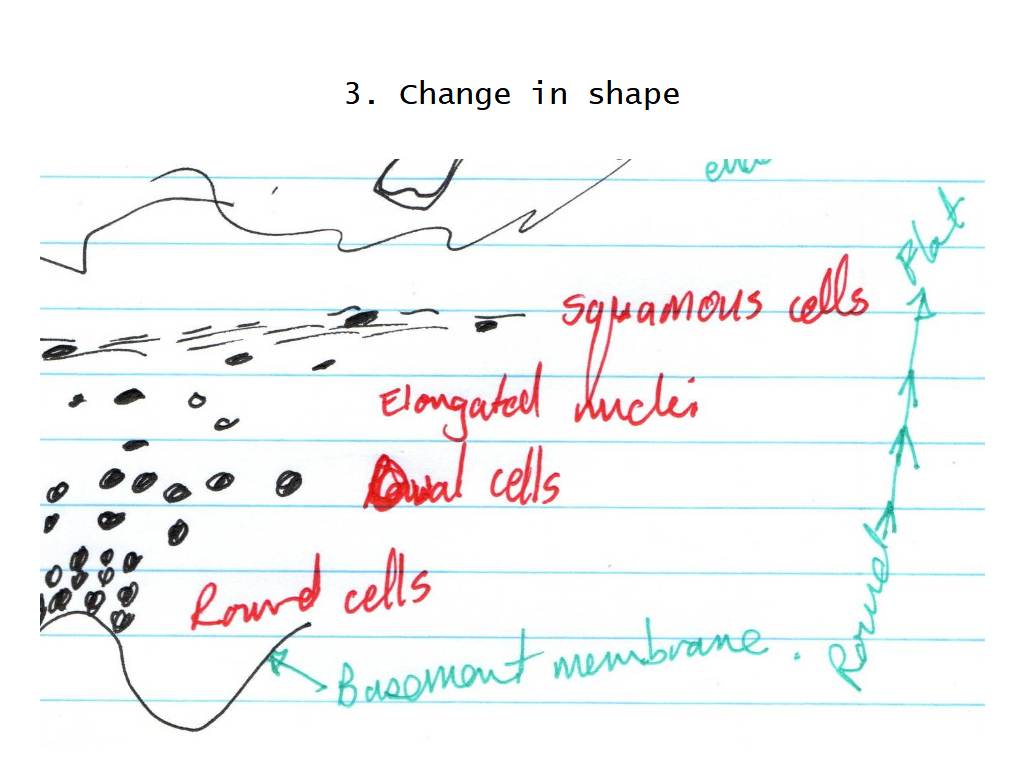 3. Change in shape
Flat
Squamous cells
Elongated nuclei
Oval cells
Round cells
Round
Basement membrane.